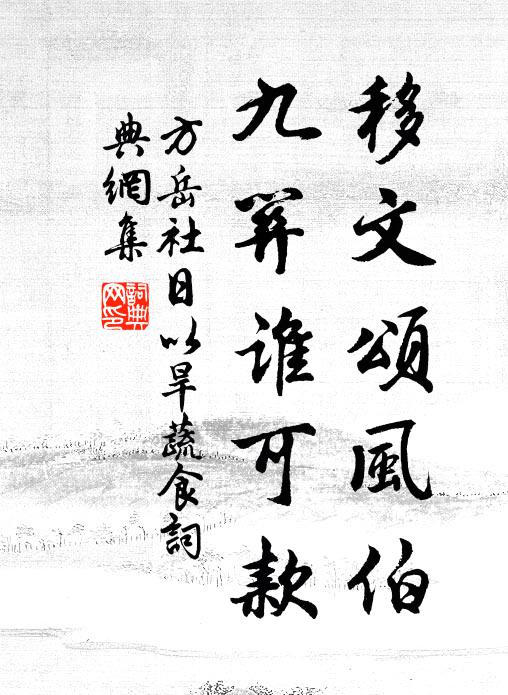 移文頌風伯
九羿誰可款
方岳社日以旱蔬食詞
典網集
詞典
网印